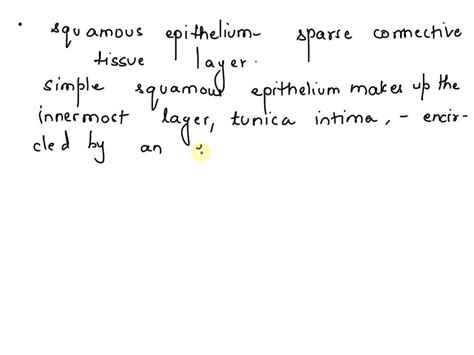 • squamous epithelium- sparse connective
tissue layer.
simple squamous epithelium makes up the
innermost layer, tunica intima, - encir-
cled by an